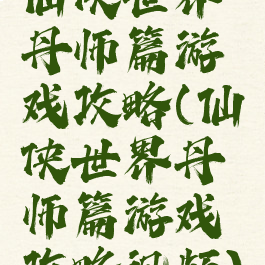 仙侠世界
丹师篇游
戏攻略(仙
侠世界丹
师篇游戏
攻略视频)